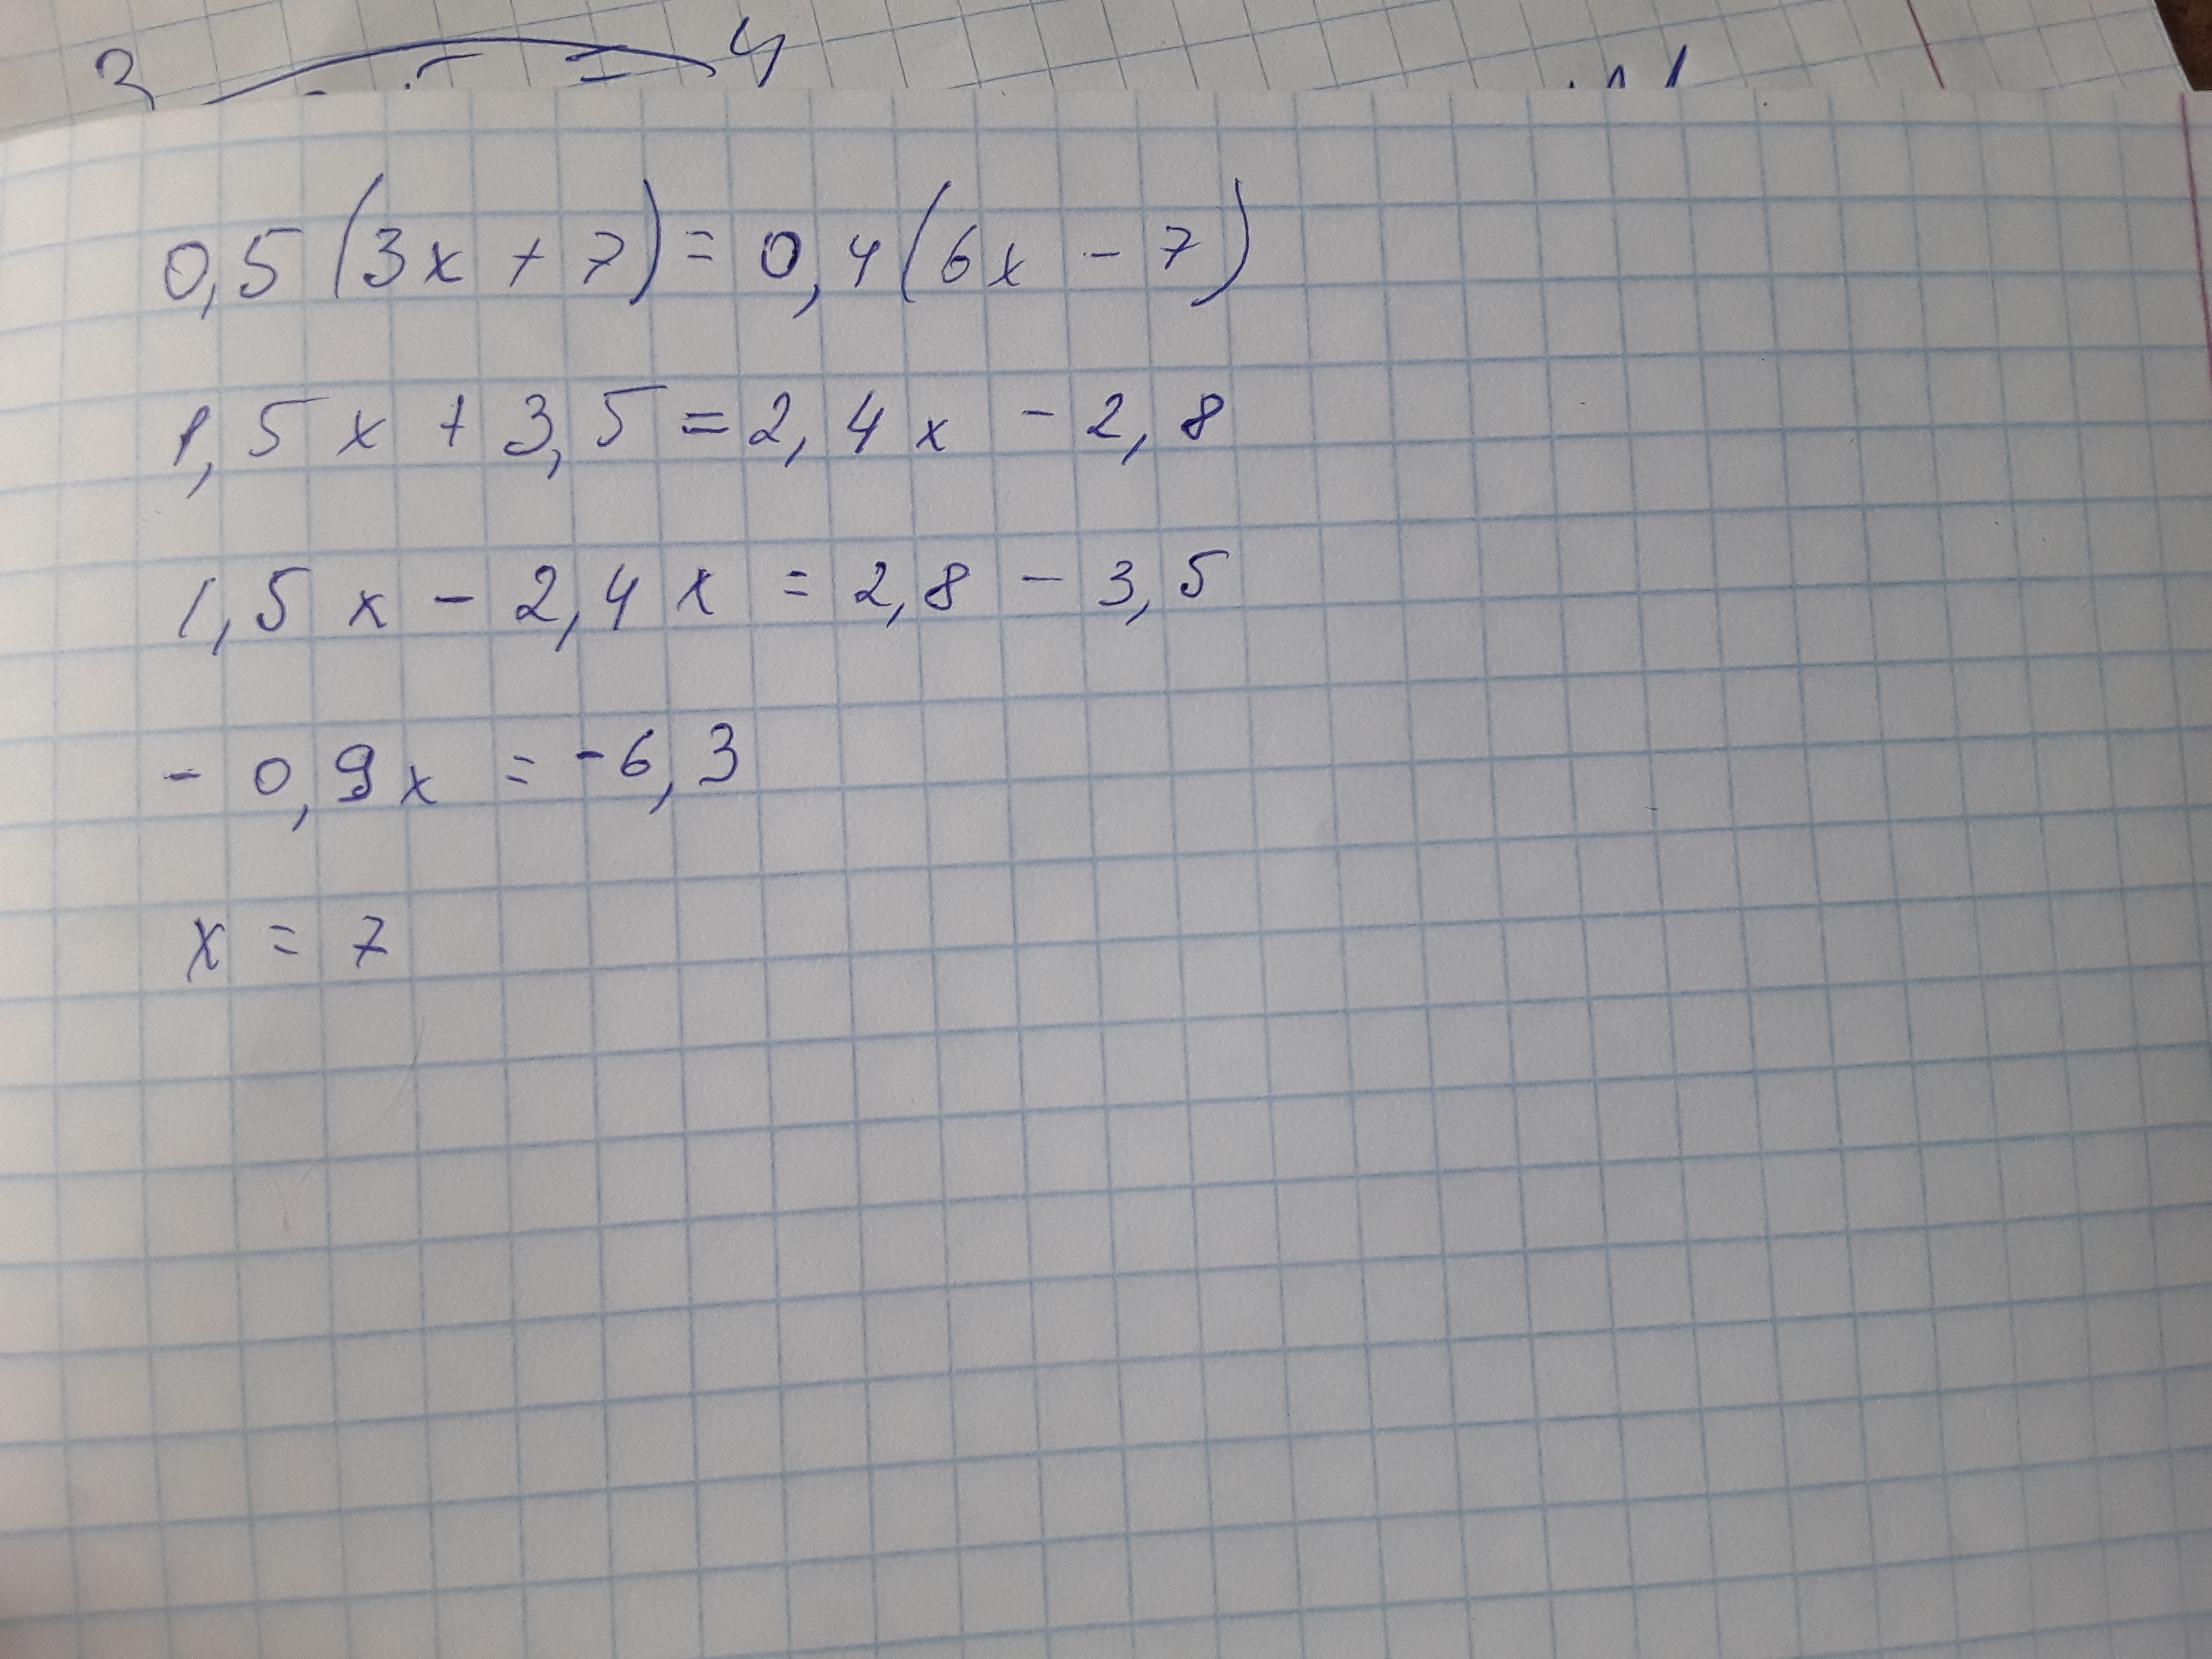 3 4
0,5 (3x + 7) = 0,4 (6x - 7)
1,5 x + 3,5 = 2,4 x - 2,8
1,5 x - 2,4 x = 2,8 - 3,5
- 0,9 x = -6,3
x = 7